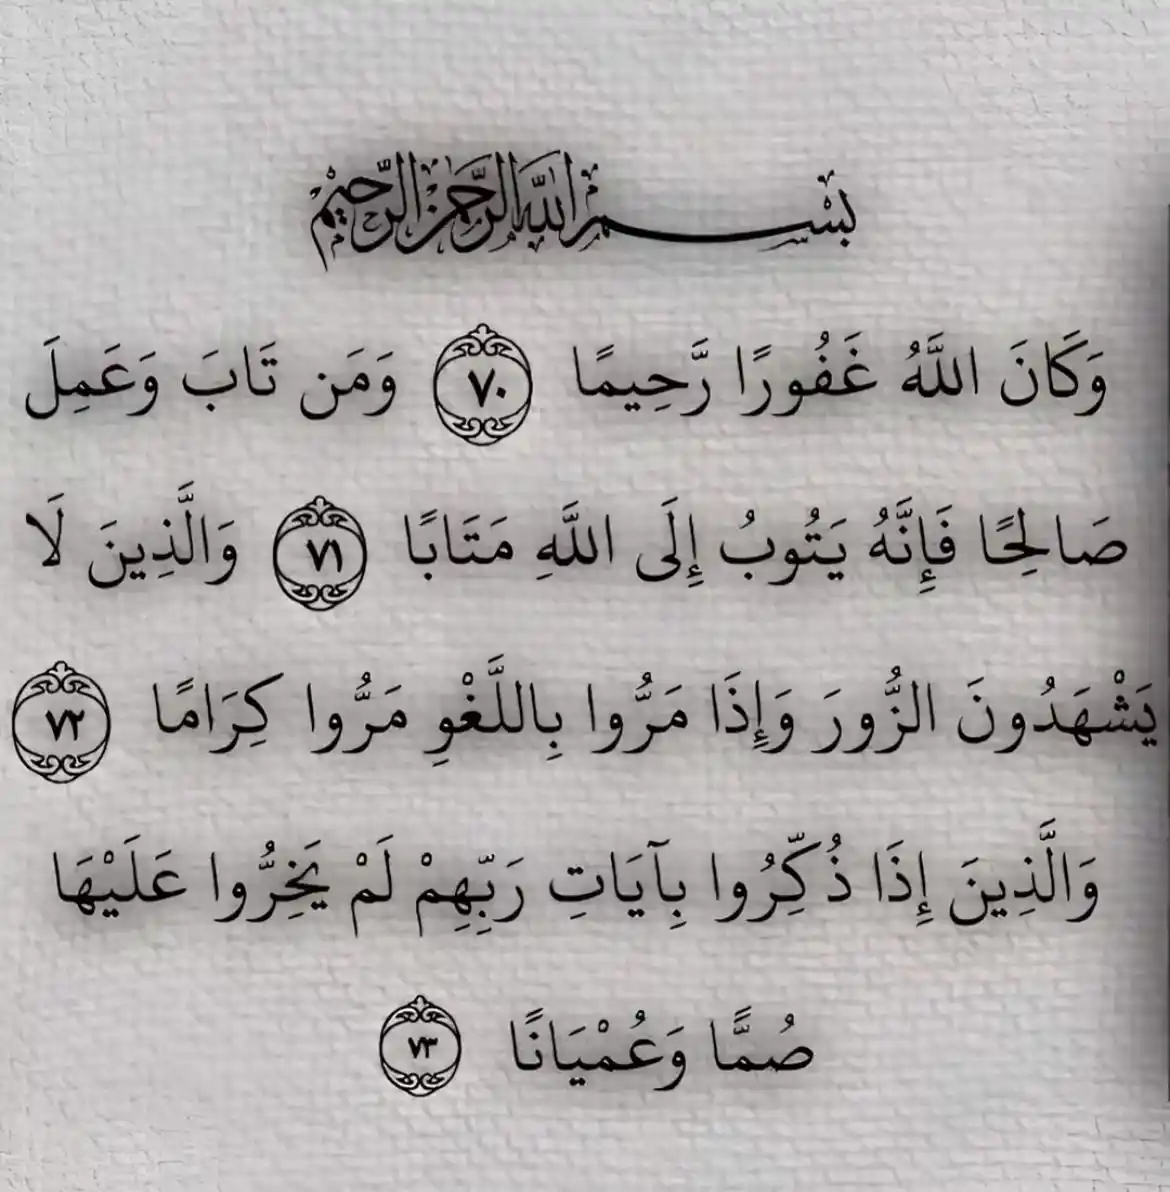 بِسْمِ اللَّهِ الرَّحْمَٰنِ الرَّحِيمِ
وَكَانَ اللَّهُ غَفُورًا رَّحِيمًا ٧٠ وَمَن تَابَ وَعَمِلَ
صَالِحًا فَإِنَّهُ يَتُوبُ إِلَى اللَّهِ مَتَابًا ٧١ وَالَّذِينَ لَا
يَشْهَدُونَ الزُّورَ وَإِذَا مَرُّوا بِاللَّغْوِ مَرُّوا كِرَامًا ٧٢
وَالَّذِينَ إِذَا ذُكِّرُوا بِآيَاتِ رَبِّهِمْ لَمْ يَخِرُّوا عَلَيْهَا
صُمًّا وَعُمْيَانًا ٧٣